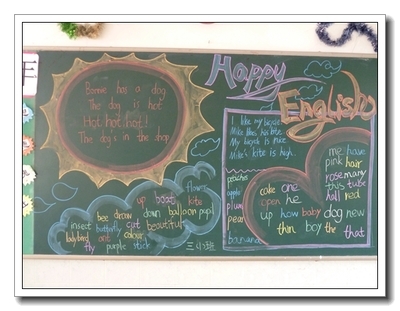 Happy
English
Bonnie has a dog
The dog is hot
Hot hot hot!
The dog's in the shop
I like my bicycle
Mike likes his kite.
My bicycle is nice
Mike's kite is high.
flower
up boat kite
bee down balloon pupil
insect butterfly cat beautiful
ladybird ant colour
fly purple stick
peaches
apple
plum
pear
banana
me house
pink hair
cake one rosemary
open he this tube
hall red
up how baby dog new
thin boy the that